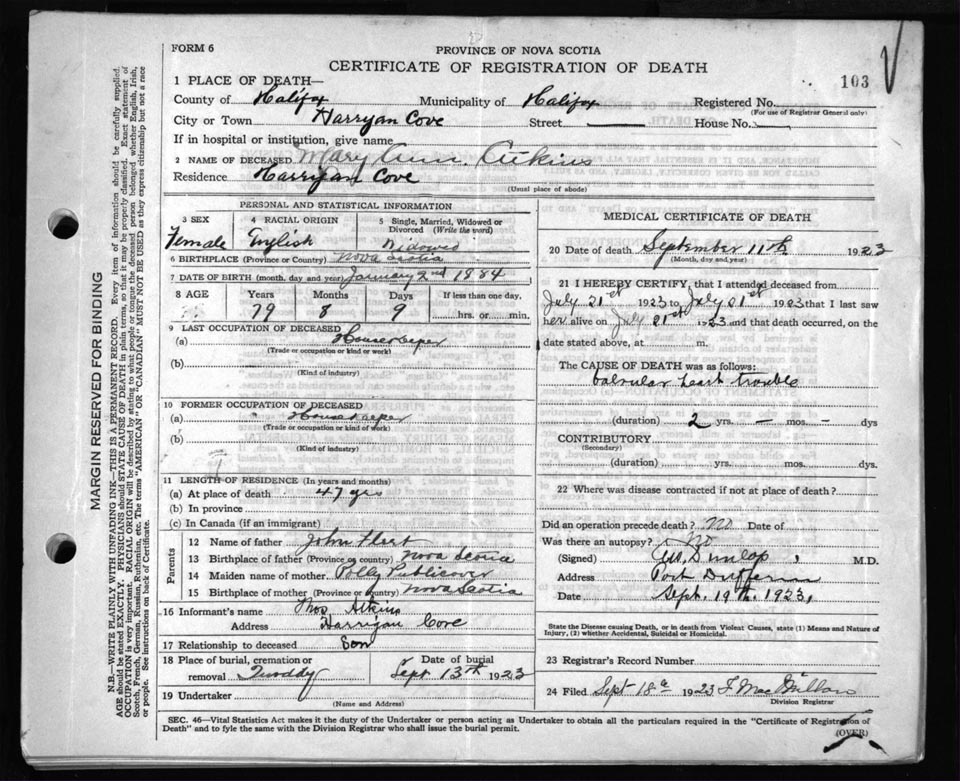 FORM 6
PROVINCE OF NOVA SCOTIA
CERTIFICATE OF REGISTRATION OF DEATH
103
1 PLACE OF DEATH—
County of Halifax Municipality of Halifax Registered No.
(For use of Registrar General only)
City or Town Harryan Cove Street House No.
If in hospital or institution, give name
2 NAME OF DECEASED Mary Ann. Atkins
Residence Harryian Cove
(Usual place of abode)
PERSONAL AND STATISTICAL INFORMATION
3 SEX
Female
4 RACIAL ORIGIN
English
5 Single, Married, Widowed or Divorced (Write the word)
Widowed
6 BIRTHPLACE (Province or Country) Nova Scotia
7 DATE OF BIRTH (month, day and year) January 2nd 1884
8 AGE Years Months Days If less than one day,
79 8 9 hrs. or min.
9 LAST OCCUPATION OF DECEASED
(a) Housekeeper
(Trade or occupation or kind or work)
(b)
(Kind of industry)
10 FORMER OCCUPATION OF DECEASED
(a) Housekeeper
(Trade or occupation or kind of work)
(b)
(Kind of industry)
11 LENGTH OF RESIDENCE (In years and months)
(a) At place of death 47 yrs
(b) In province
(c) In Canada (if an immigrant)
Parents
12 Name of father John
13 Birthplace of father (Province or country) Nova Scotia
14 Maiden name of mother Polly Publicover
15 Birthplace of mother (Province or country) Nova Scotia
16 Informant's name Thos Atkins
Address Harrigan Cove
17 Relationship to deceased Son
18 Place of burial, cremation or removal Quoddy
Date of burial
Sept 13th 1923
19 Undertaker
(Name and Address)
MEDICAL CERTIFICATE OF DEATH
20 Date of death September 11th 1923
(Month, day and year)
21 I HEREBY CERTIFY, that I attended deceased from
July 21st 1923 to July 21st 1923 that I last saw
her alive on July 21st 1923 and that death occurred, on the
date stated above, at m.
The CAUSE OF DEATH was as follows:
Valvular heart trouble
(duration) 2 yrs. — mos. — dys
CONTRIBUTORY
(Secondary)
(duration) yrs. mos. dys.
22 Where was disease contracted if not at place of death?
Did an operation precede death? No Date of
Was there an autopsy? No
(Signed) Dunlop, M.D.
Address Port Dufferin
Date Sept. 19th 1923,
State the Disease causing Death, or in death from Violent Causes, state (1) Means and Nature of
Injury, (2) whether Accidental, Suicidal or Homicidal.
23 Registrar's Record Number
24 Filed Sept 18th 1923
Division Registrar
SEC. 46—Vital Statistics Act makes it the duty of the Undertaker or person acting as Undertaker to obtain all the particulars required in the "Certificate of Registration of
Death" and to fyle the same with the Division Registrar who shall issue the burial permit.
(OVER)
MARGIN RESERVED FOR BINDING
N.B.—WRITE PLAINLY WITH UNFADING INK—THIS IS A PERMANENT RECORD. Every item of information should be carefully supplied.
AGE should be stated EXACTLY. PHYSICIANS should STATE CAUSE OF DEATH in plain terms, so that it may be properly classified. Exact statement of
OCCUPATION is very important. RACIAL ORIGIN will be described by stating to what people or tongue the deceased person belonged whether English, Irish,
Scotch, French, German, Russian, Ruthenian, etc. The terms "AMERICAN" OR "CANADIAN" MUST NOT BE USED as they express citizenship but not a race
or people. See Instructions on back of Certificate.